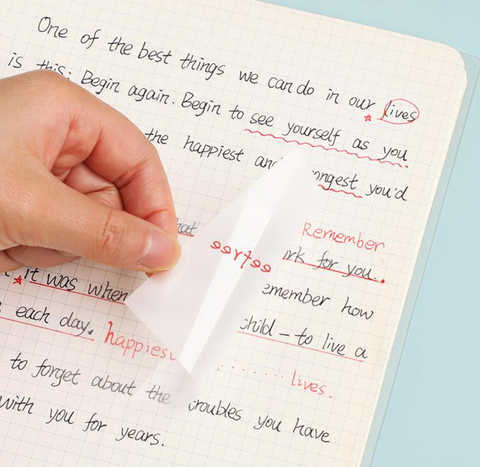 One of the best things we can do in our lives
is this: Begin again. Begin to see yourself as you
the happiest and ongest you'd
hat Remember
ork for you.
it was when emember how
each day. happiest child – to live a
lives.
to forget about the troubles you have
with you for years.